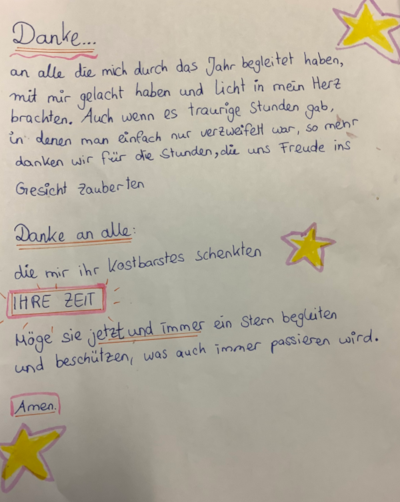 Danke...
an alle die mich durch das Jahr begleitet haben,
mit mir gelacht haben und Licht in mein Herz
brachten. Auch wenn es traurige Stunden gab,
in denen man einfach nur verzweifelt war, so mehr
danken wir für die Stunden, die uns Freude ins
Gesicht zauberten
Danke an alle:
die mir ihr Kostbarstes schenkten
IHRE ZEIT
Möge sie jetzt und immer ein Stern begleiten
und beschützen, was auch immer passieren wird.
Amen.